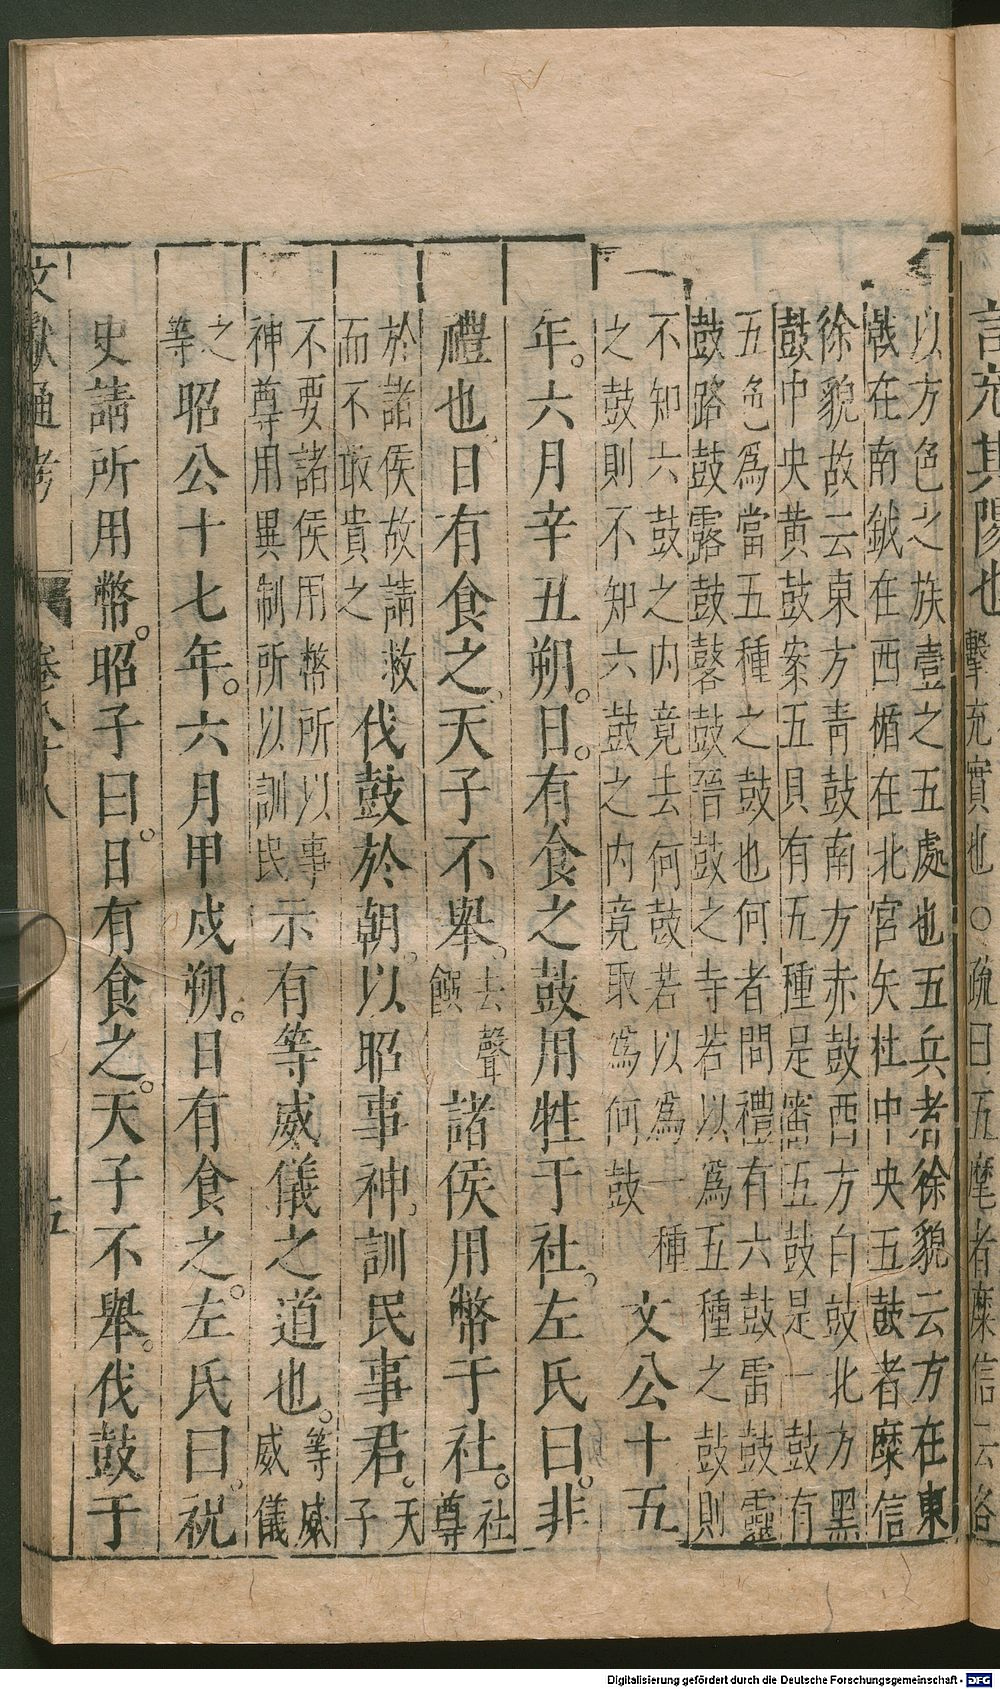 言充其陽也擊充實也○疏曰五麾者糜信云各
以方色之族壹之五處也五兵者徐貌云方在東
戟在南鉞在西楯在北宮矢杜中央五鼓者糜信
徐貌故云東方青鼓南方赤鼓西方白鼓北方黑
鼓中央黄鼓案五貝有五種是審五鼓是一鼓有
五色爲當五種之鼓也何者問禮有六鼓雷鼓靈
鼓路鼓露鼓鼛鼓晉鼓之寺若以爲五種之鼓則
不知六鼓之内竟去何鼓若以為一種
之鼓則不知六鼓之内竟取爲何鼓
文公十五
年。六月辛丑朔。日。有食之鼓用牲于社。左氏曰。非
禮也日有食之、天子不舉。去聲饌諸侯用幣于社。社尊
於諸侯故請救而不敢貴之伐鼓於朝。以昭事神、訓民事君。天子
不要諸侯用幣所以事神尊用異制所以訓民示有等威儀之道也。等威威儀
之等昭公十七年。六月甲戍朔。日有食之。左氏曰。祝
史請所用幣。昭子曰。日有食之。天子不舉。伐鼓于
文獻通考 卷八十八 五
Digitalisierung gefördert durch die Deutsche Forschungsgemeinschaft - DFG